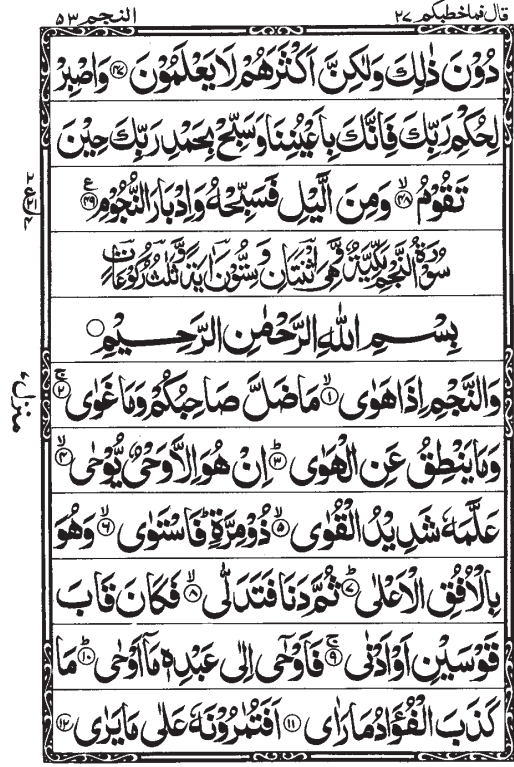 قال فما خطبكم ٢٧
النجم ٥٣
دُوْنَ ذٰلِكَ وَلٰكِنَّ اَكْثَرَهُمْ لَا يَعْلَمُوْنَ ﴿۴۷﴾ وَاصْبِرْ
لِحُكْمِ رَبِّكَ فَاِنَّكَ بِاَعْيُنِنَا وَسَبِّحْ بِحَمْدِ رَبِّكَ حِيْنَ
تَقُوْمُ ﴿۴۸﴾ۙ وَمِنَ الَّيْلِ فَسَبِّحْهُ وَاِدْبَارَ النُّجُوْمِ ﴿۴۹﴾ ع
سُوْرَةُ النَّجْمِ مَكِّيَّةٌ وَّهِيَ اثْنَتَانِ وَسِتُّوْنَ اٰيَةً وَّثَلٰثُ رُكُوْعَاتٍ
بِسْمِ اللّٰهِ الرَّحْمٰنِ الرَّحِيْمِ
وَالنَّجْمِ اِذَا هَوٰى ﴿۱﴾ۙ مَا ضَلَّ صَاحِبُكُمْ وَمَا غَوٰى ﴿۲﴾ۚ
وَمَا يَنْطِقُ عَنِ الْهَوٰى ﴿۳﴾ؕ اِنْ هُوَ اِلَّا وَحْيٌ يُّوْحٰى ﴿۴﴾ۙ
عَلَّمَهٗ شَدِيْدُ الْقُوٰى ﴿۵﴾ۙ ذُوْ مِرَّةٍؕ فَاسْتَوٰى ﴿۶﴾ۙ وَهُوَ
بِالْاُفُقِ الْاَعْلٰى ﴿۷﴾ؕ ثُمَّ دَنَا فَتَدَلّٰى ﴿۸﴾ۙ فَكَانَ قَابَ
قَوْسَيْنِ اَوْ اَدْنٰى ﴿۹﴾ۚ فَاَوْحٰى اِلٰى عَبْدِهٖ مَاۤ اَوْحٰى ﴿۱۰﴾ؕ مَا
كَذَبَ الْفُؤَادُ مَا رَاٰى ﴿۱۱﴾ اَفَتُمٰرُوْنَهٗ عَلٰى مَا يَرٰى ﴿۱۲﴾
منزل ۷